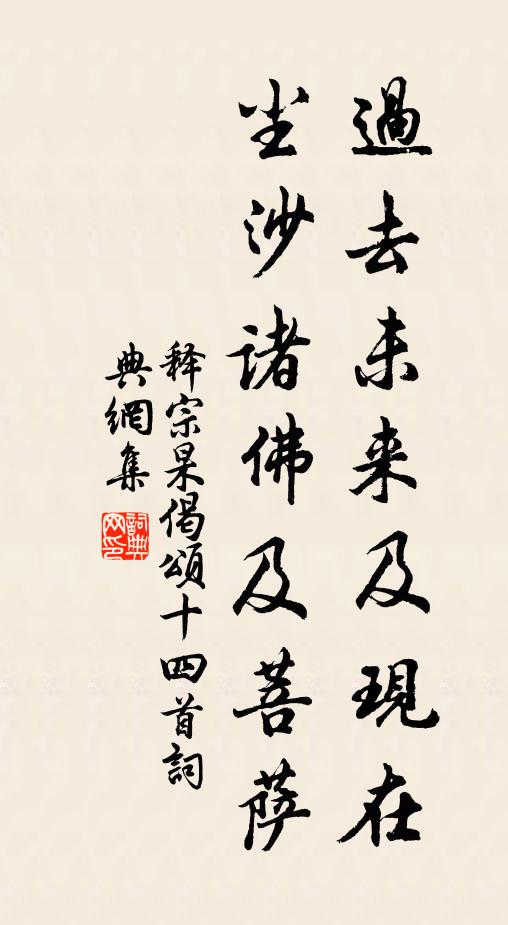 過去未来及現在
尘沙諸佛及菩萨
释宗杲偈頌十四首詞
典網集
詞典网印